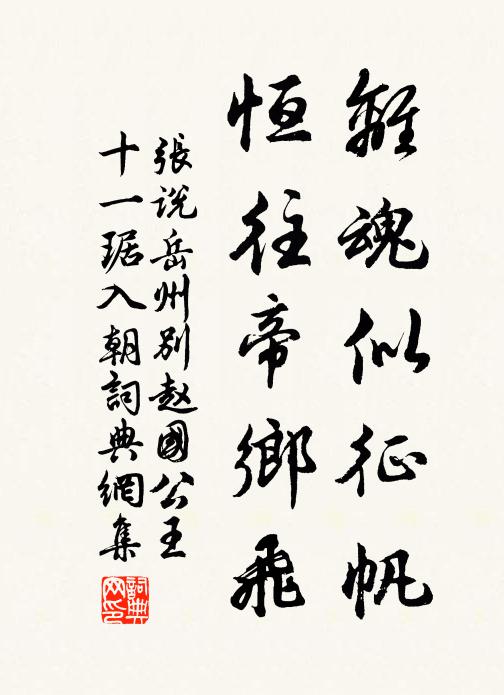 離魂似征帆
恒往帝鄉飛
張說岳州別赵國公王
十一琚入朝詞典網集
詞典网印